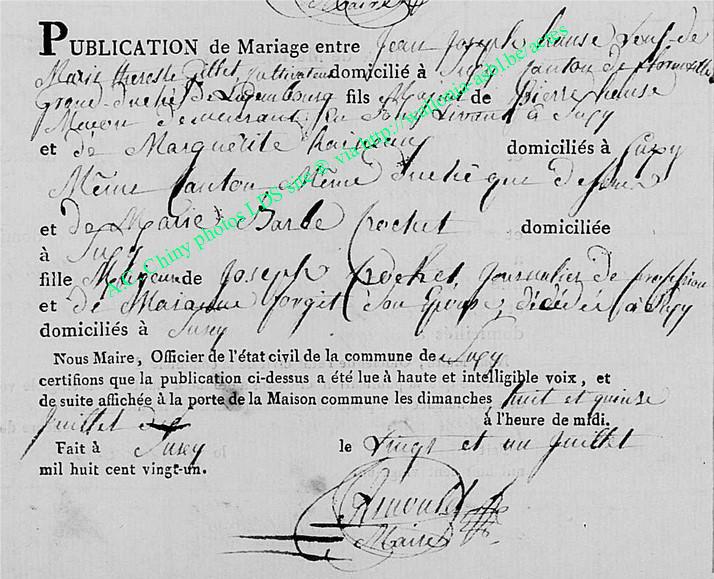 Maire
PUBLICATION de Mariage entre Jean Joseph hause veuf de
Marie therese Gillet, cultivateur domicilié à Sugy Canton de florenville
Grand-duché de Luxembourg fils Majeur de Pierre hause
Maçon demeurant vivant à Sugy
et de Marguerite domiciliés à Sugy
Même Canton, Même Duché que dessus
et de Marie Barbe Crochet domiciliée
à Sugy
fille Majeure de Joseph Crochet, Journalier de profession
et de Marianne forget son épouse, décédée à Sugy
domiciliés à Sugy
Nous Maire, Officier de l'état civil de la commune de Sugy
certifions que la publication ci-dessus a été lue à haute et intelligible voix, et
de suite affichée à la porte de la Maison commune les dimanches huit et quinse
juillet à l'heure de midi.
Fait à Sugy le vingt et un Juillet
mil huit cent vingt-un.
Maire
AG Chiny photos LDS site® via http://wallonia-asbl.be/actes